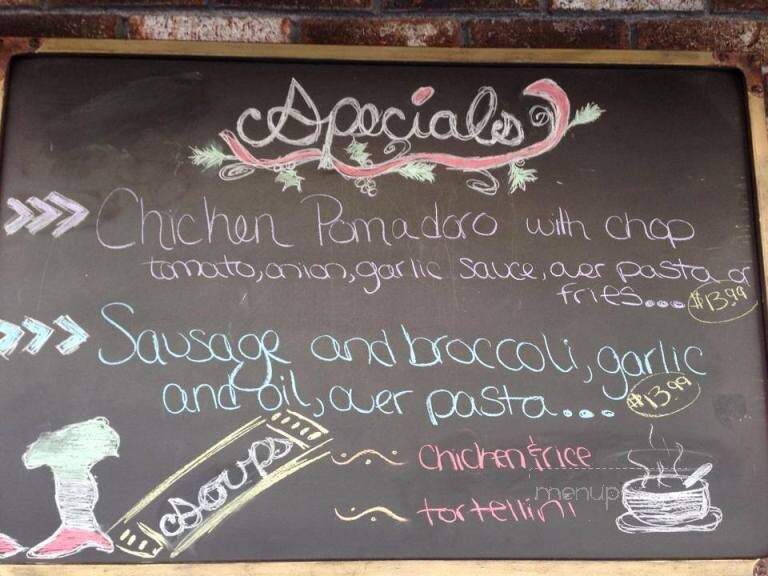 Specials
Chicken Pomadoro with chop
tomato, onion, garlic sauce, over pasta or
fries... $13.99
Sausage and broccoli, garlic
and oil, over pasta... $13.99
Soups
~ chicken & rice
~ tortellini
menup